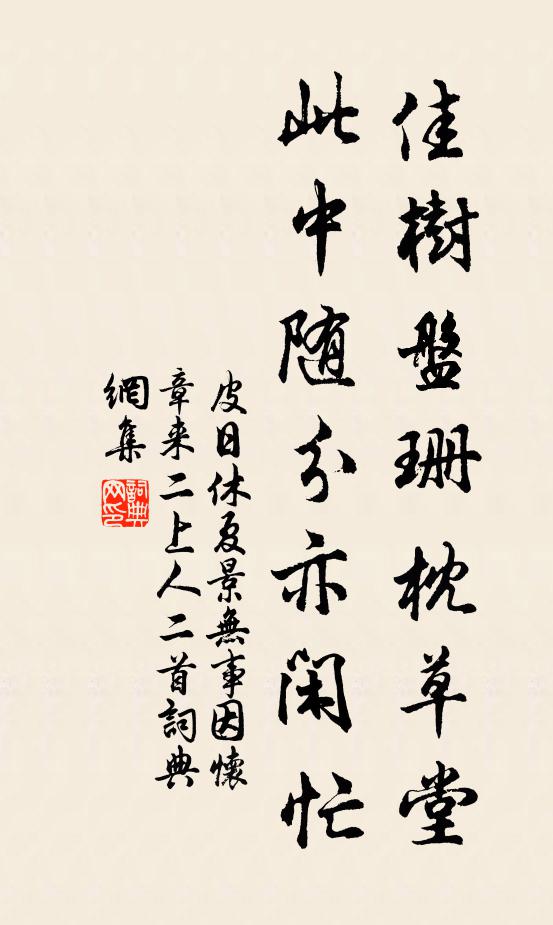 佳樹盤珊枕草堂
此中隨分亦閑忙
皮日休夏景無事因懷
章来二上人二首詞典
網集
詞典
网印